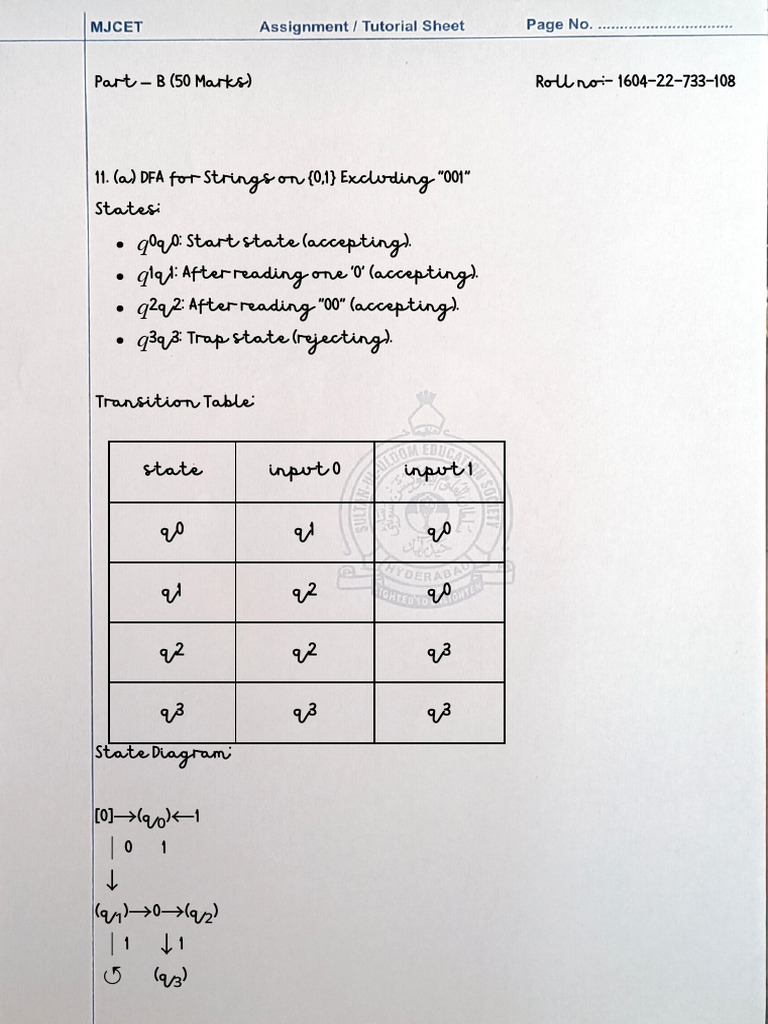 MJCET Assignment / Tutorial Sheet Page No. ................................
Part – B (50 Marks) Roll no:- 1604-22-733-108
11. (a) DFA for Strings on {0,1} Excluding "001"
States:
• q0q0: Start state (accepting).
• q1q1: After reading one '0' (accepting).
• q2q2: After reading "00" (accepting).
• q3q3: Trap state (rejecting).
Transition Table:
state input 0 input 1
q0 q1 q0
q1 q2 q0
q2 q2 q3
q3 q3 q3
SULTAN-UL-ULOOM EDUCATION SOCIETY
HYDERABAD
State Diagram:
[0]→(q0)←1
| 0 1
↓
(q1)→0→(q2)
| 1 ↓ 1
↺ (q3)